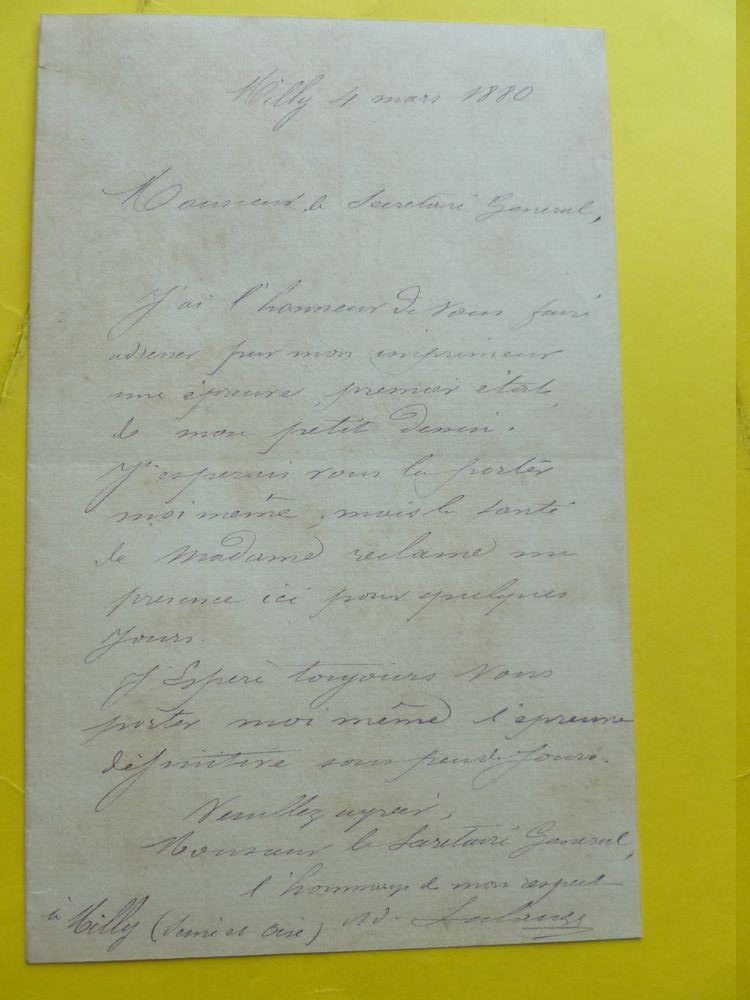 Milly 4 mars 1880
Monsieur le Secretaire General,
J'ai l'honneur de vous faire
adresser par mon imprimeur
une épreuve, premier état,
de mon petit dessin.
J'esperais vous la porter
moi même, mais la santé
de Madame reclame ma
presence ici pour quelques
jours.
J'Espere toujours vous
porter moi même l'épreuve
définitive sous peu de jours.
Veuillez agréer,
Monsieur le Secretaire General,
l'hommage de mon respect
Ad. Lalauze
à Milly (Seine et Oise)